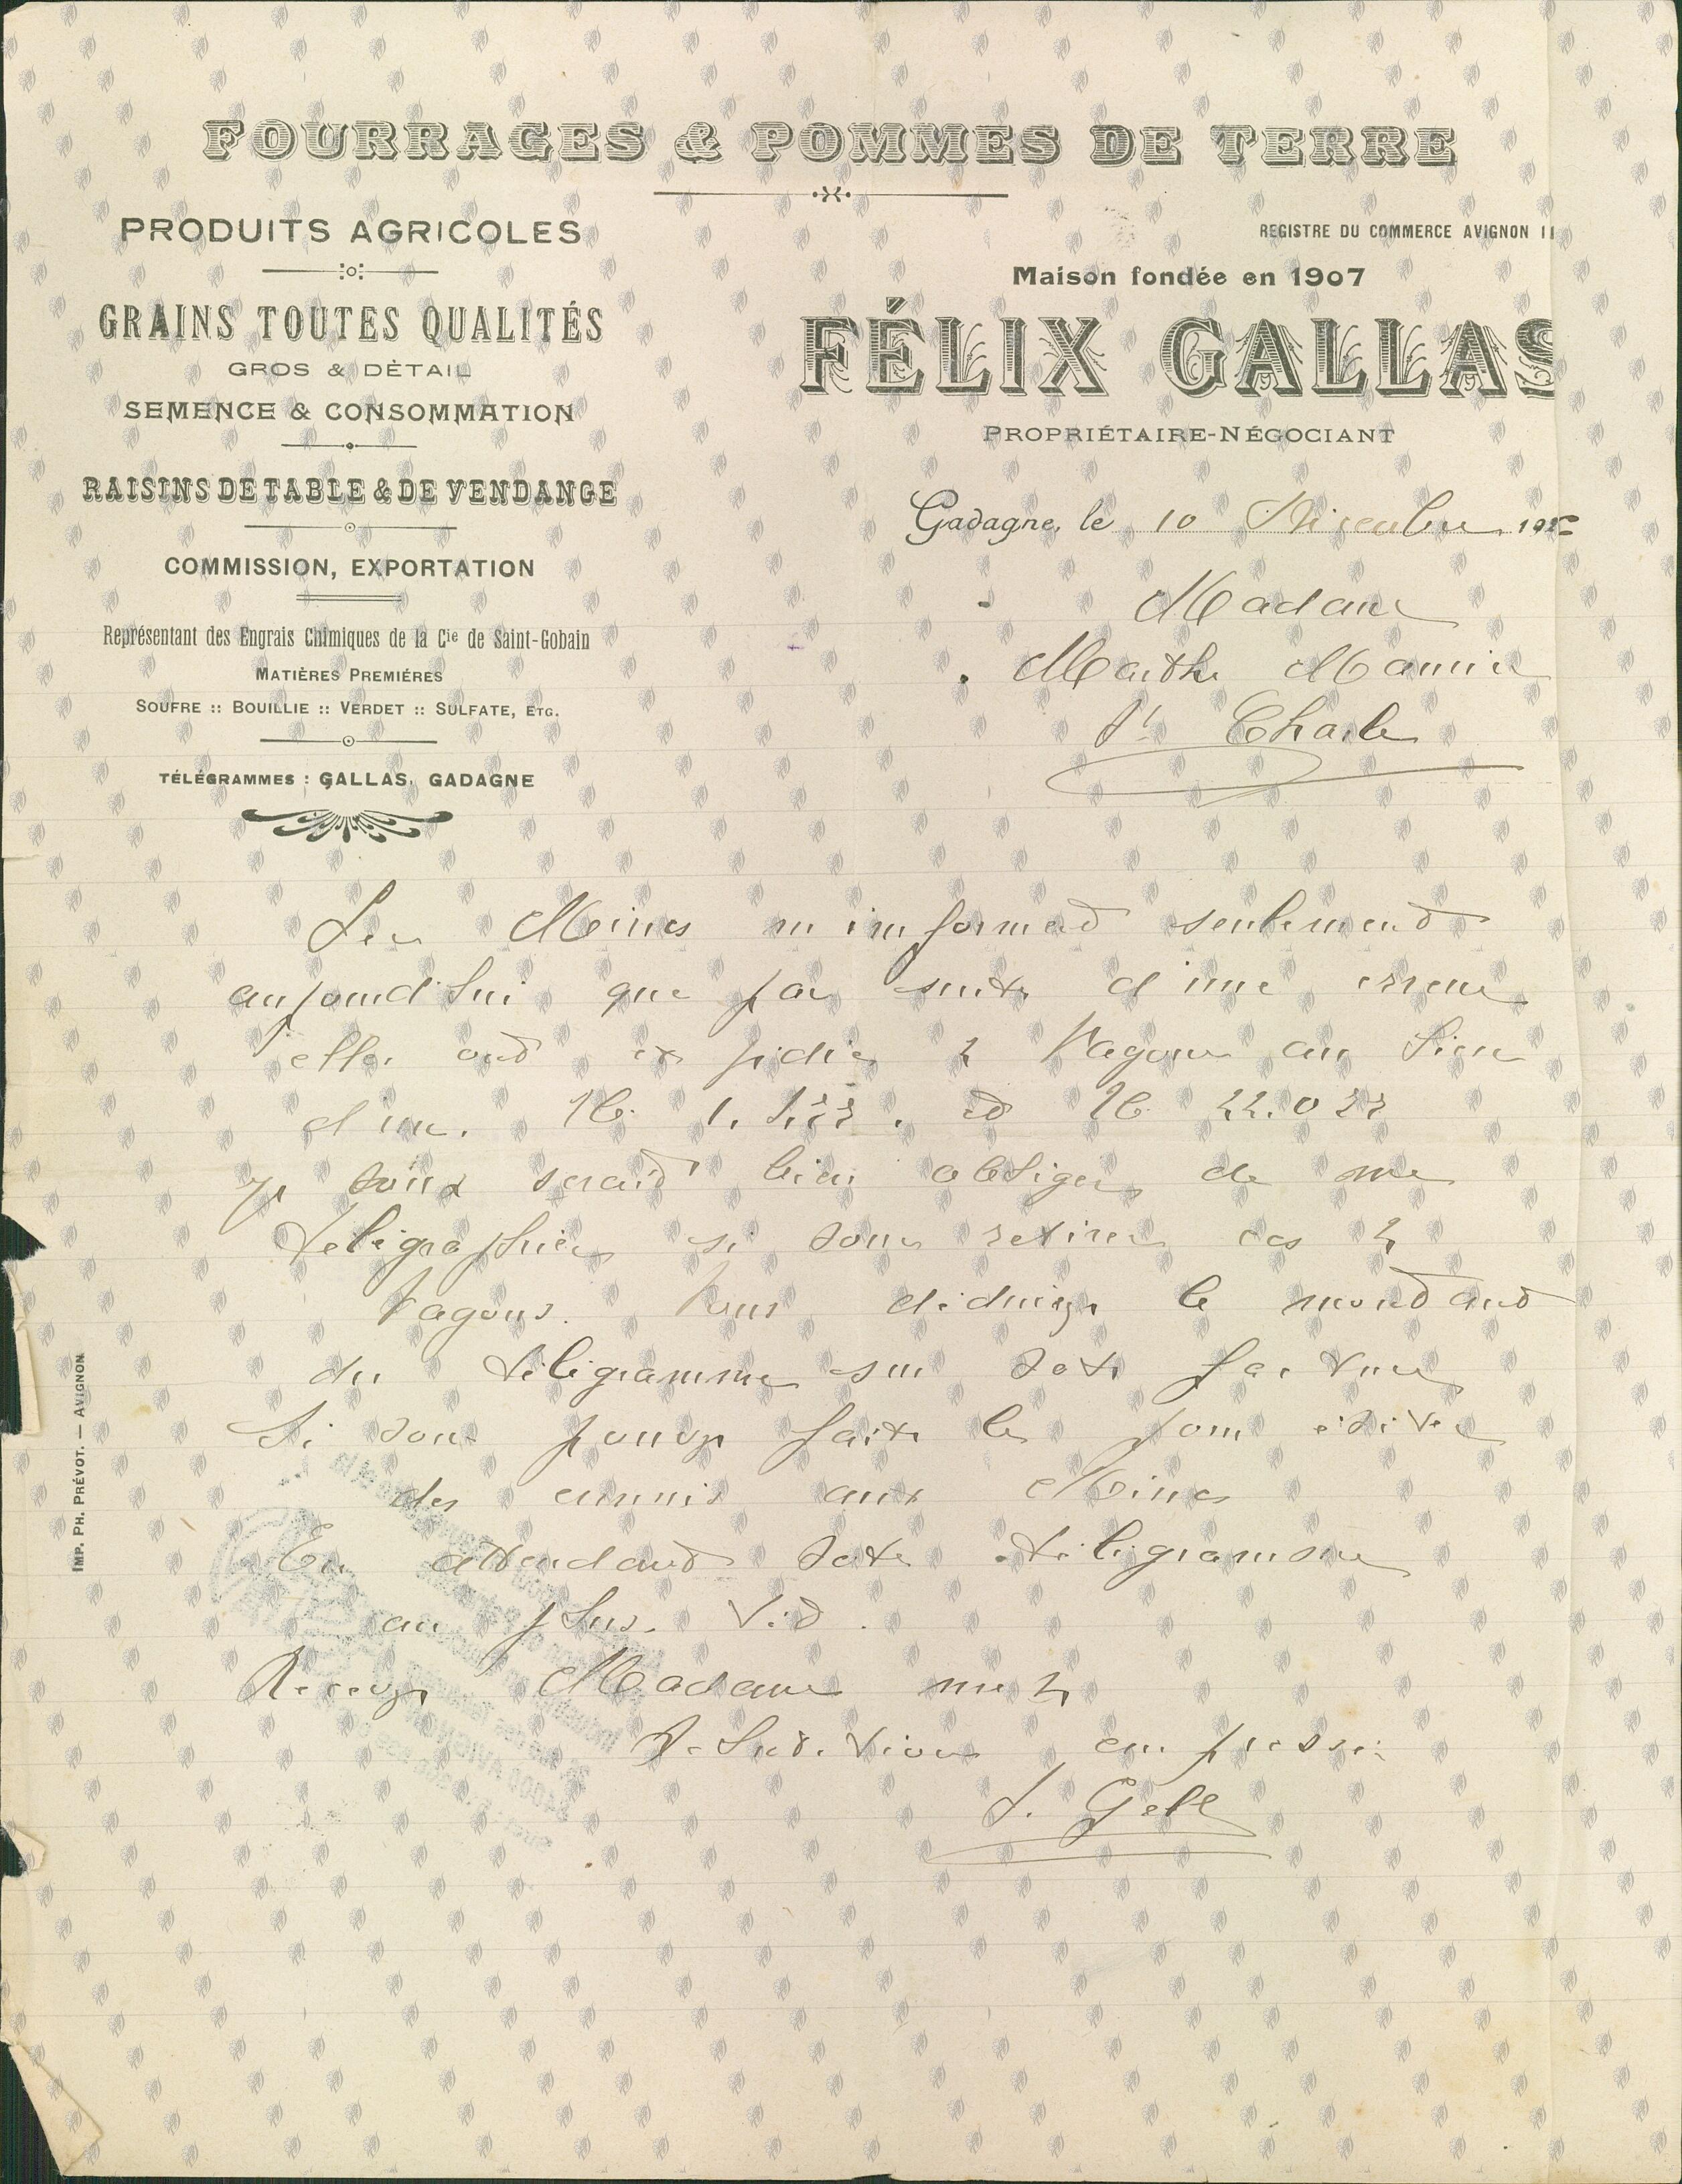 FOURRAGES & POMMES DE TERRE
PRODUITS AGRICOLES
GRAINS TOUTES QUALITÉS
GROS & DÉTAIL
SEMENCE & CONSOMMATION
RAISINS DE TABLE & DE VENDANGE
COMMISSION, EXPORTATION
Représentant des Engrais Chimiques de la Cie de Saint-Gobain
MATIÈRES PREMIÉRES
SOUFRE :: BOUILLIE :: VERDET :: SULFATE, ETC.
TÉLÉGRAMMES : GALLAS, GADAGNE
REGISTRE DU COMMERCE AVIGNON 11
Maison fondée en 1907
FÉLIX GALLAS
PROPRIÉTAIRE-NÉGOCIANT
Gadagne, le 10
Madame
Marthe
St Charle
Les Mines m informent seulement
aujourd'hui que par suite d'une erreur
elles ont expédié 2 Vagons au lieu
d'un.
je serait bien obliger de me
télégraphier si vous retirer ces 2
Vagons. Vous déduirez le montant
du télégramme sur votre facture
Si vous pouvez faite le pour éviter
des ennuis aux Mines
En attendant votre télégramme
au plus vit.
Recevez Madame mes
salutations empressé
IMP. PH. PRÉVOT. — AVIGNON